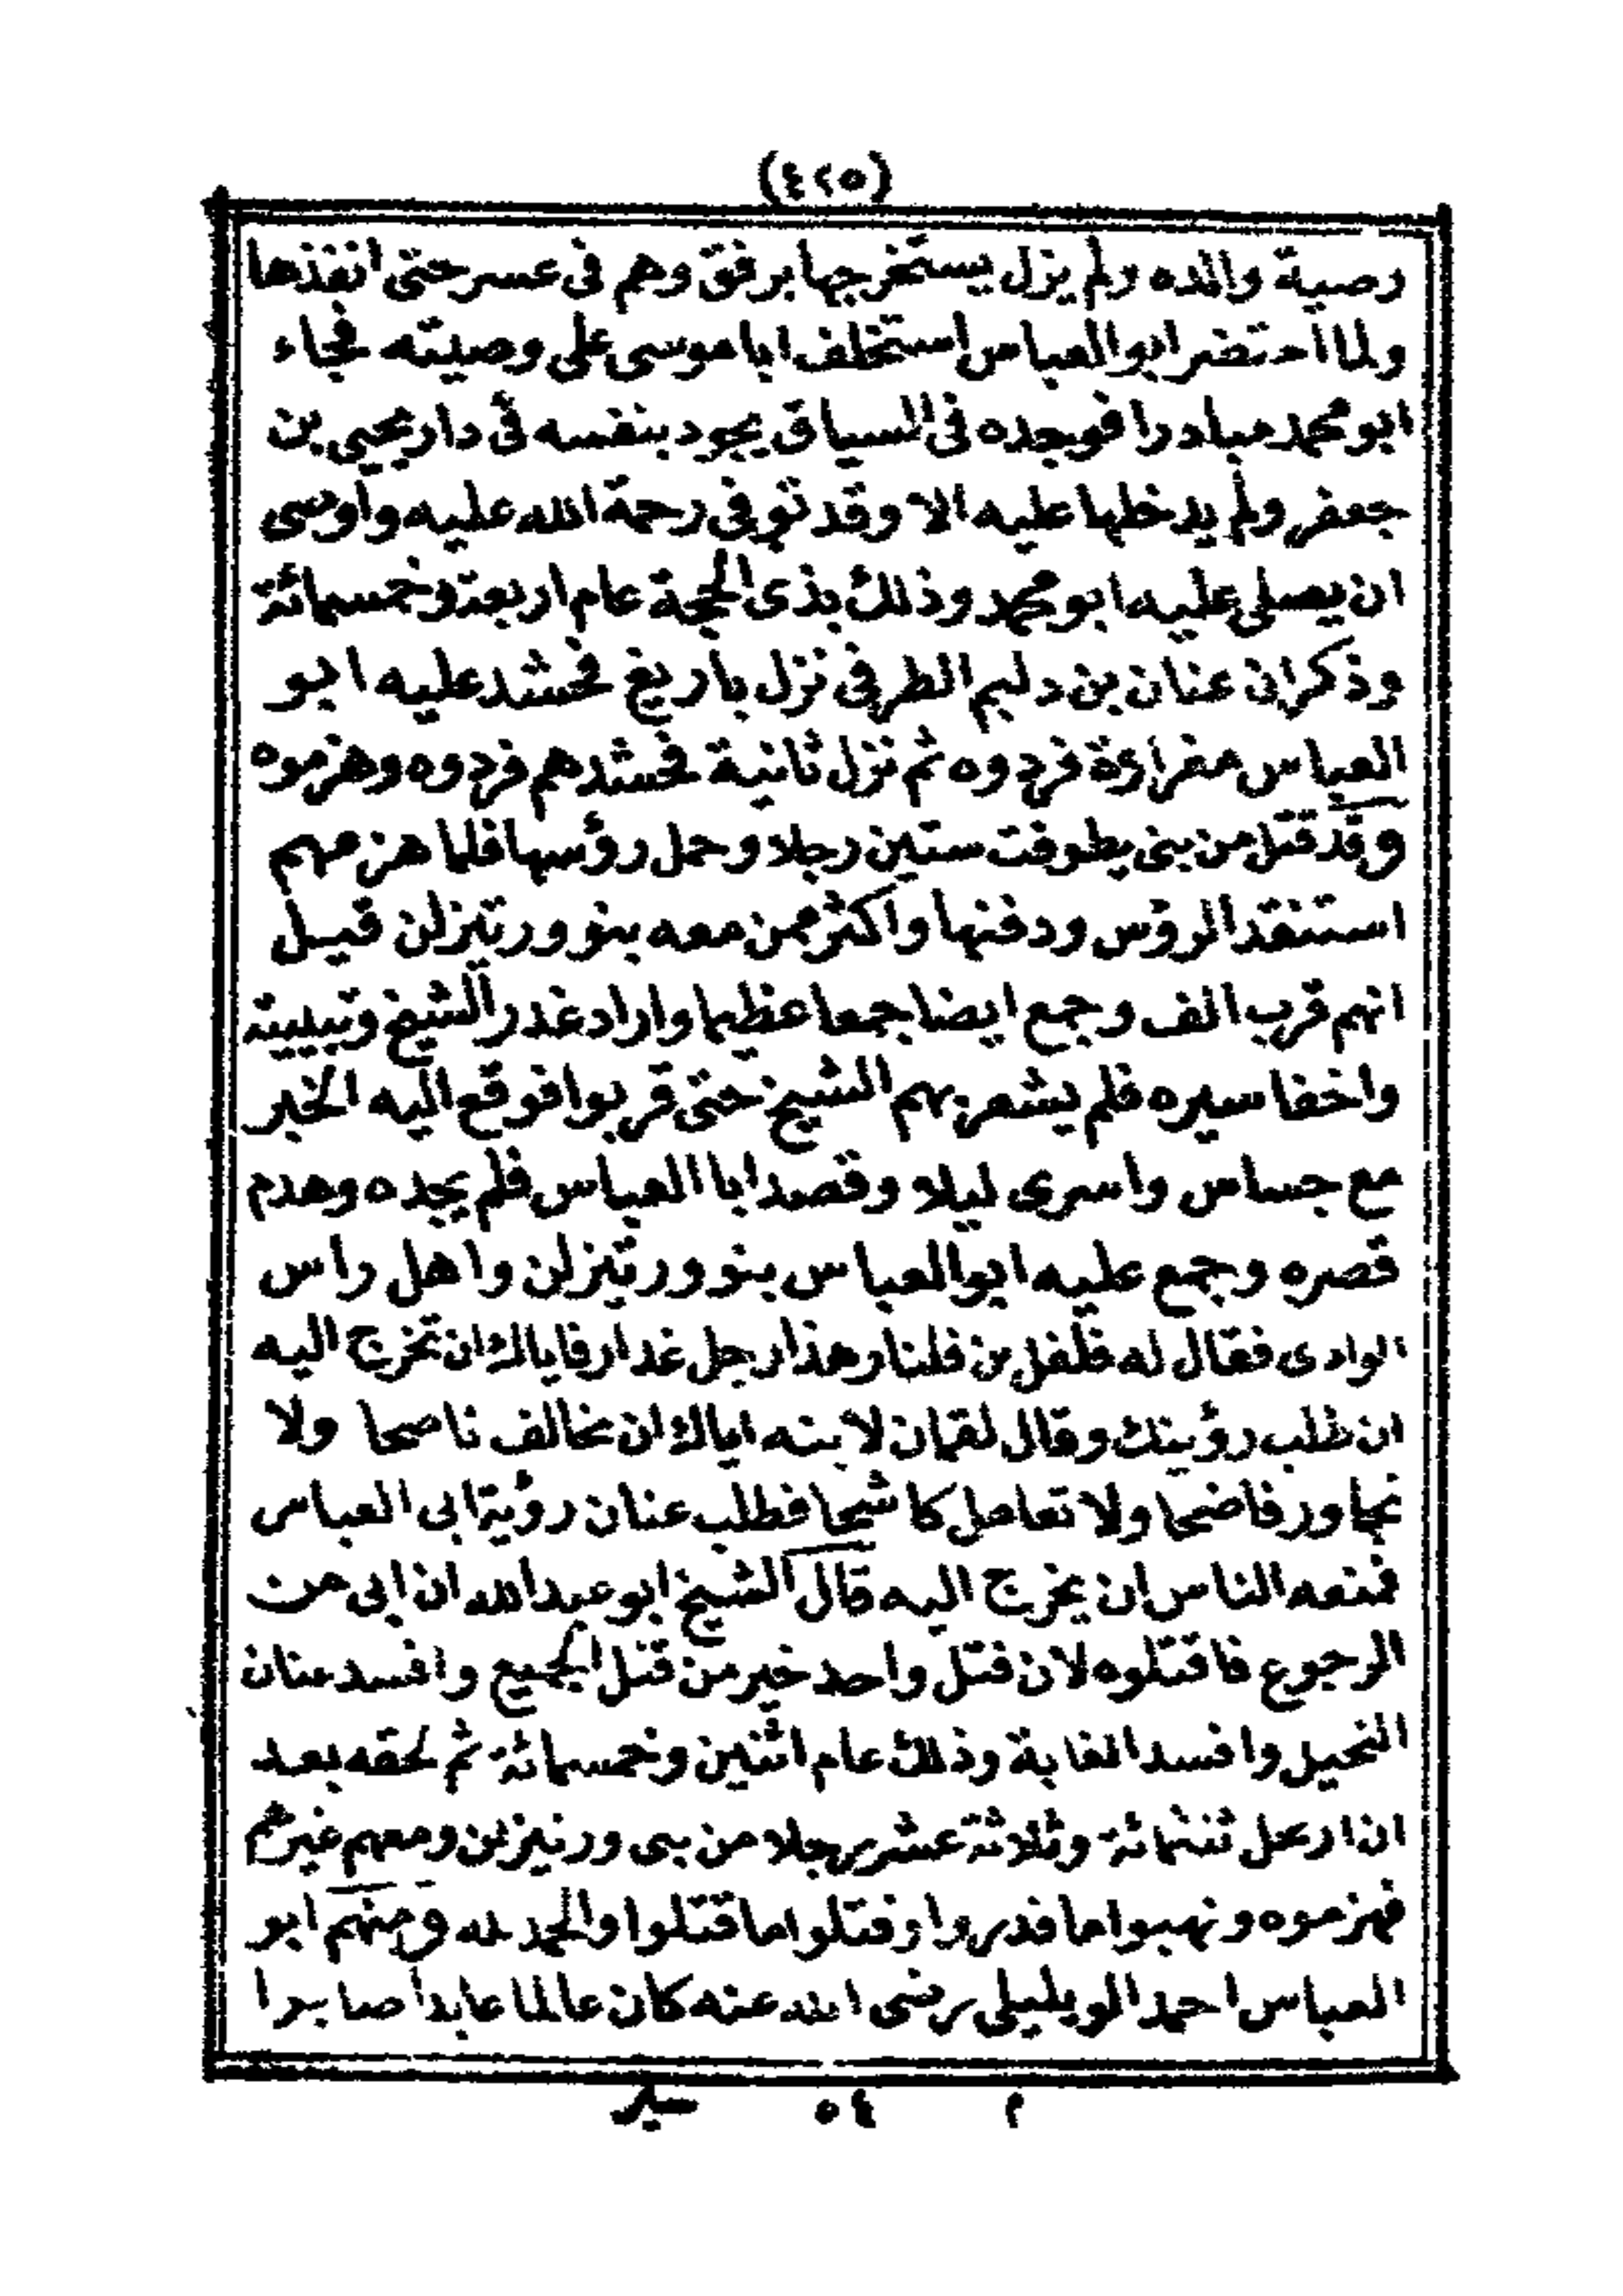 (٤٢٥)
وصية والده ولم يزل يستخرجها برفق وهم فى عسر حتى انفذها
ولما احتضر ابو العباس استخلف ابا موسى على وصيته فجاء
ابو محمد مبادرا فوجده فى السياق يجود بنفسه فى دار يحيى بن
جعفر ولم يدخلها عليه الا وقد توفى رحمة الله عليه واوصى
ان يصلى عليه ابو محمد وذلك بذى الحجة عام اربعة وخمسمائة
وذكر ان عنان بن دليم الطرفى نزل باريغ فحشد عليه ابو
العباس مغراوة فردوه ثم نزل ثانية فحشدهم فردوه وهزموه
وقد قتل من بنى يطوفت ستين رجلا وحمل رؤسها فلما هزمهم
استنقذ الرؤس ودفنها واكثر ممن معه بنو ورتيزلن قيل
انهم قرب الف وجمع ايضا جمعا عظيما واراد غدر الشيخ وتبييته
واخفا سيره فلم يشعر بهم الشيخ حتى قربوا فوقع اليه الخبر
مع جساس واسرى ليلا وقصد ابا العباس فلم يجده وهدم
قصره وجمع عليه ابو العباس بنو ورتيزلن واهل راس
الوادى فقال له فلفل بن فلنار هذا رجل غدار فاياك ان تخرج اليه
ان طلب رؤيتك وقال لقمان لابنه اياك ان تخالف ناصحا ولا
تجاور فاضحا ولا تعامل كاشحا فطلب عنان رؤية ابى العباس
فمنعه الناس ان يخرج اليه قال الشيخ ابو عبد الله ان ابى من
الرجوع فاقتلوه لان قتل واحد خير من قتل الجميع وافسد عنان
النخيل وافسد الغابة وذلك عام اثنين وخمسمائة ثم لحقه بعد
ان ارتحل ثنثمائة وثلاثة عشر رجلا من بنى ورتيزلن ومعهم غيرهم
فهزموه ونهبوا ما قدروا وقتلوا ما قتلوا والحمد لله ومنهم ابو
العباس احمد الويليلى رضى الله عنه كان عالما عابدا صابرا
م ٥٤ سير